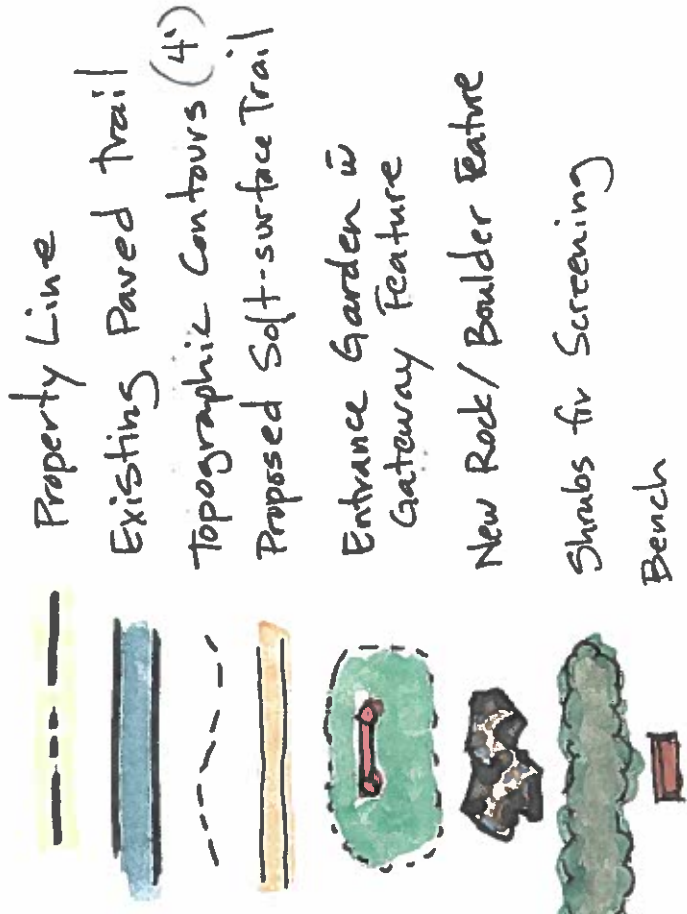 Property Line
Existing Paved trail
Topographic Contours (4')
Proposed Soft-surface Trail
Entrance Garden w̄
Gateway Feature
New Rock/Boulder Feature
Shrubs for Screening
Bench